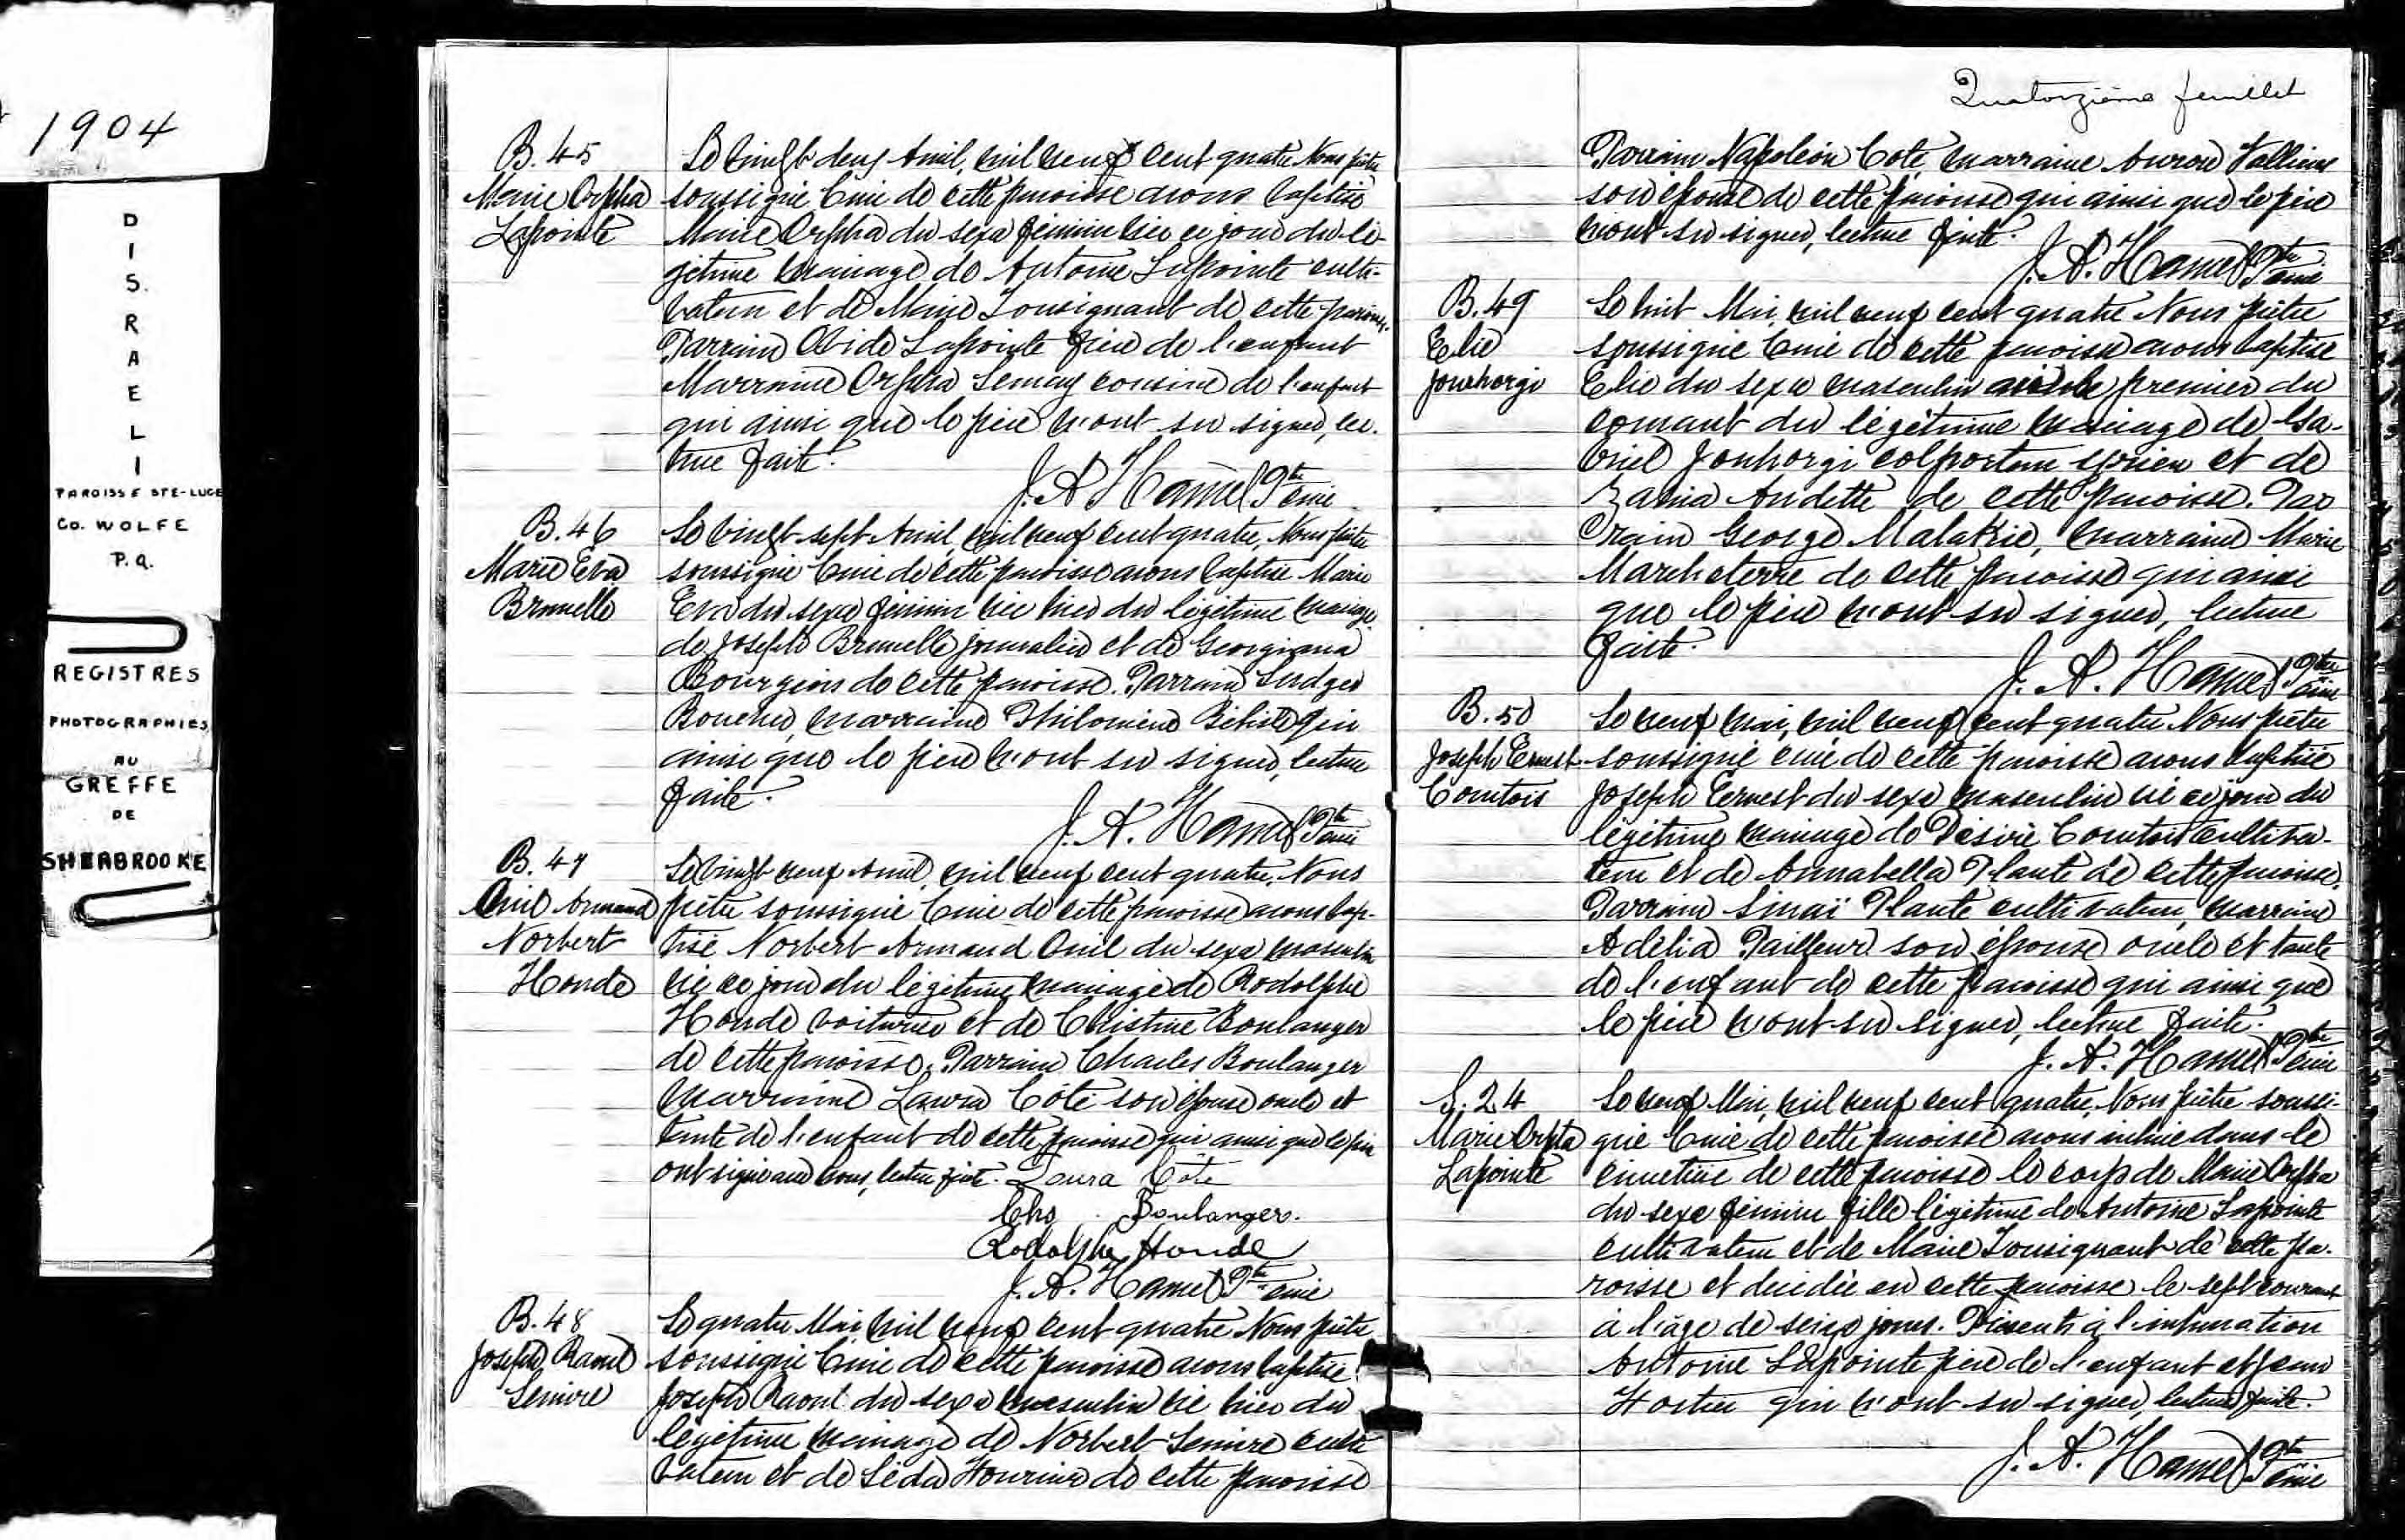 1904
DISRAELI
PAROISSE STE-LUCE
Co. WOLFE
P.Q.
REGISTRES
PHOTOGRAPHIES
AU
GREFFE
DE
SHERBROOKE
B. 45
Marie Orpha
Lapointe
Le vingt deux Avril, mil neuf cent quatre Nous prêtre
soussigné Curé de cette paroisse avons baptisé
Marie Orpha du sexe féminin née ce jour du lé-
gitime mariage de Antoine Lapointe culti-
vateur et de Marie Tousignant de cette paroisse.
Parrain Ovide Lapointe frère de l'enfant
Marraine Orpha Lemay cousine de l'enfant
qui ainsi que le père n'ont su signer, lec-
ture faite.
J. A. Hamel Ptre curé
B. 46
Marie Eva
Brunelle
Le vingt sept Avril, mil neuf cent quatre, Nous prêtre
soussigné Curé de cette paroisse avons baptisé Marie
Eva du sexe féminin née hier du légitime mariage
de Joseph Brunelle journalier et de Georgiana
Bourgeois de cette paroisse. Parrain Ludger
Boucher, marraine Philomène qui
ainsi que le père n'ont su signer, lecture
faite.
J. A. Hamel Ptre curé
B. 47
Ovil Armand
Norbert
Houde
Le vingt neuf Avril, mil neuf cent quatre, Nous
prêtre soussigné Curé de cette paroisse avons bap-
tisé Norbert Armand Ovil du sexe masculin
né ce jour du légitime mariage de Rodolphe
Houde voiturier et de Christine Boulanger
de cette paroisse. Parrain Charles Boulanger
Marraine Laura Côté son épouse oncle et
tante de l'enfant de cette paroisse qui ainsi que le père
ont signé avec nous, lecture faite. Laura Côté
Chs. Boulanger.
Rodolphe Houde
J. A. Hamel Ptre curé
B. 48
Joseph Raoul
Lemire
Le quatre Mai, mil neuf cent quatre Nous prêtre
soussigné Curé de cette paroisse avons baptisé
Joseph Raoul du sexe masculin né hier du
légitime mariage de Norbert Lemire culti
vateur et de Léda Fournier de cette paroisse
Quatorzième feuillet
Parrain Napoléon Coté, marraine Aurore Vallières
son épouse de cette paroisse qui ainsi que le père
n'ont su signer, lecture faite.
J. A. Hamel Ptre curé
B. 49
Elie
Jourhorgi
Le huit Mai, mil neuf cent quatre Nous prêtre
soussigné Curé de cette paroisse avons baptisé
Elie du sexe masculin né le premier du
courant du légitime mariage de Ga-
briel Jourhorgi colporteur syrien et de
Zahia Audette de cette paroisse. Par
rain George Malakie, marraine Marie
Marcheterre de cette paroisse qui ainsi
que le père n'ont su signer, lecture
faite.
J. A. Hamel Ptre curé
B. 50
Joseph Ernest
Comtois
Le neuf mai, mil neuf cent quatre Nous prêtre
soussigné curé de cette paroisse avons baptisé
Joseph Ernest du sexe masculin né ce jour du
légitime mariage de Désiré Comtois cultiva-
teur et de Annabella Plante de cette paroisse.
Parrain Sinaï Plante cultivateur, marraine
Adélia Tailleur son épouse oncle et tante
de l'enfant de cette paroisse qui ainsi que
le père n'ont su signer, lecture faite.
J. A. Hamel Ptre curé
S. 24
Marie Orpha
Lapointe
Le neuf Mai, mil neuf cent quatre, Nous prêtre soussi-
gné Curé de cette paroisse avons inhumé dans le
cimetière de cette paroisse le corps de Marie Orpha
du sexe féminin fille légitime de Antoine Lapointe
cultivateur et de Marie Tousignant de cette pa-
roisse et décédée en cette paroisse le sept courant
à l'âge de seize jours. Présents à l'inhumation
Antoine Lapointe père de l'enfant et Jean
Fortier qui n'ont su signer, lecture faite.
J. A. Hamel Ptre curé